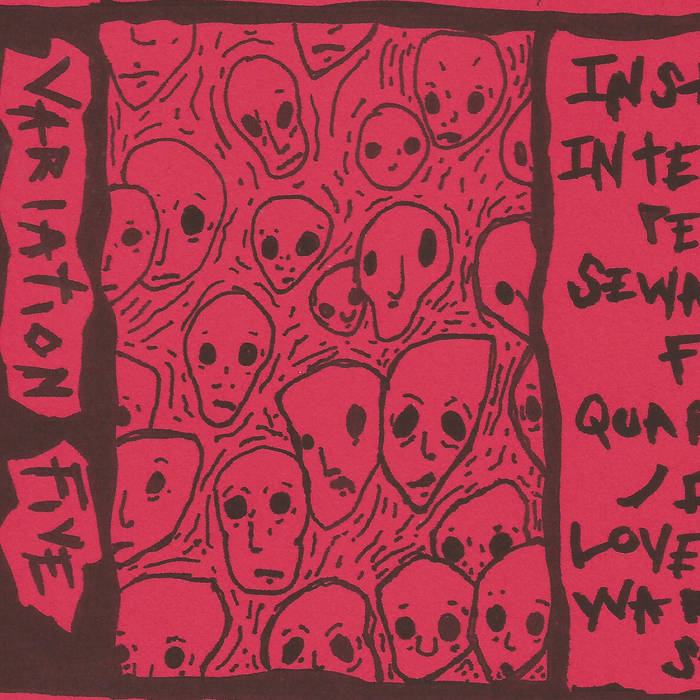 VARIATION
FIVE
INST
INTE
PE
SEWA
F
QUA
LOVE
WA
S